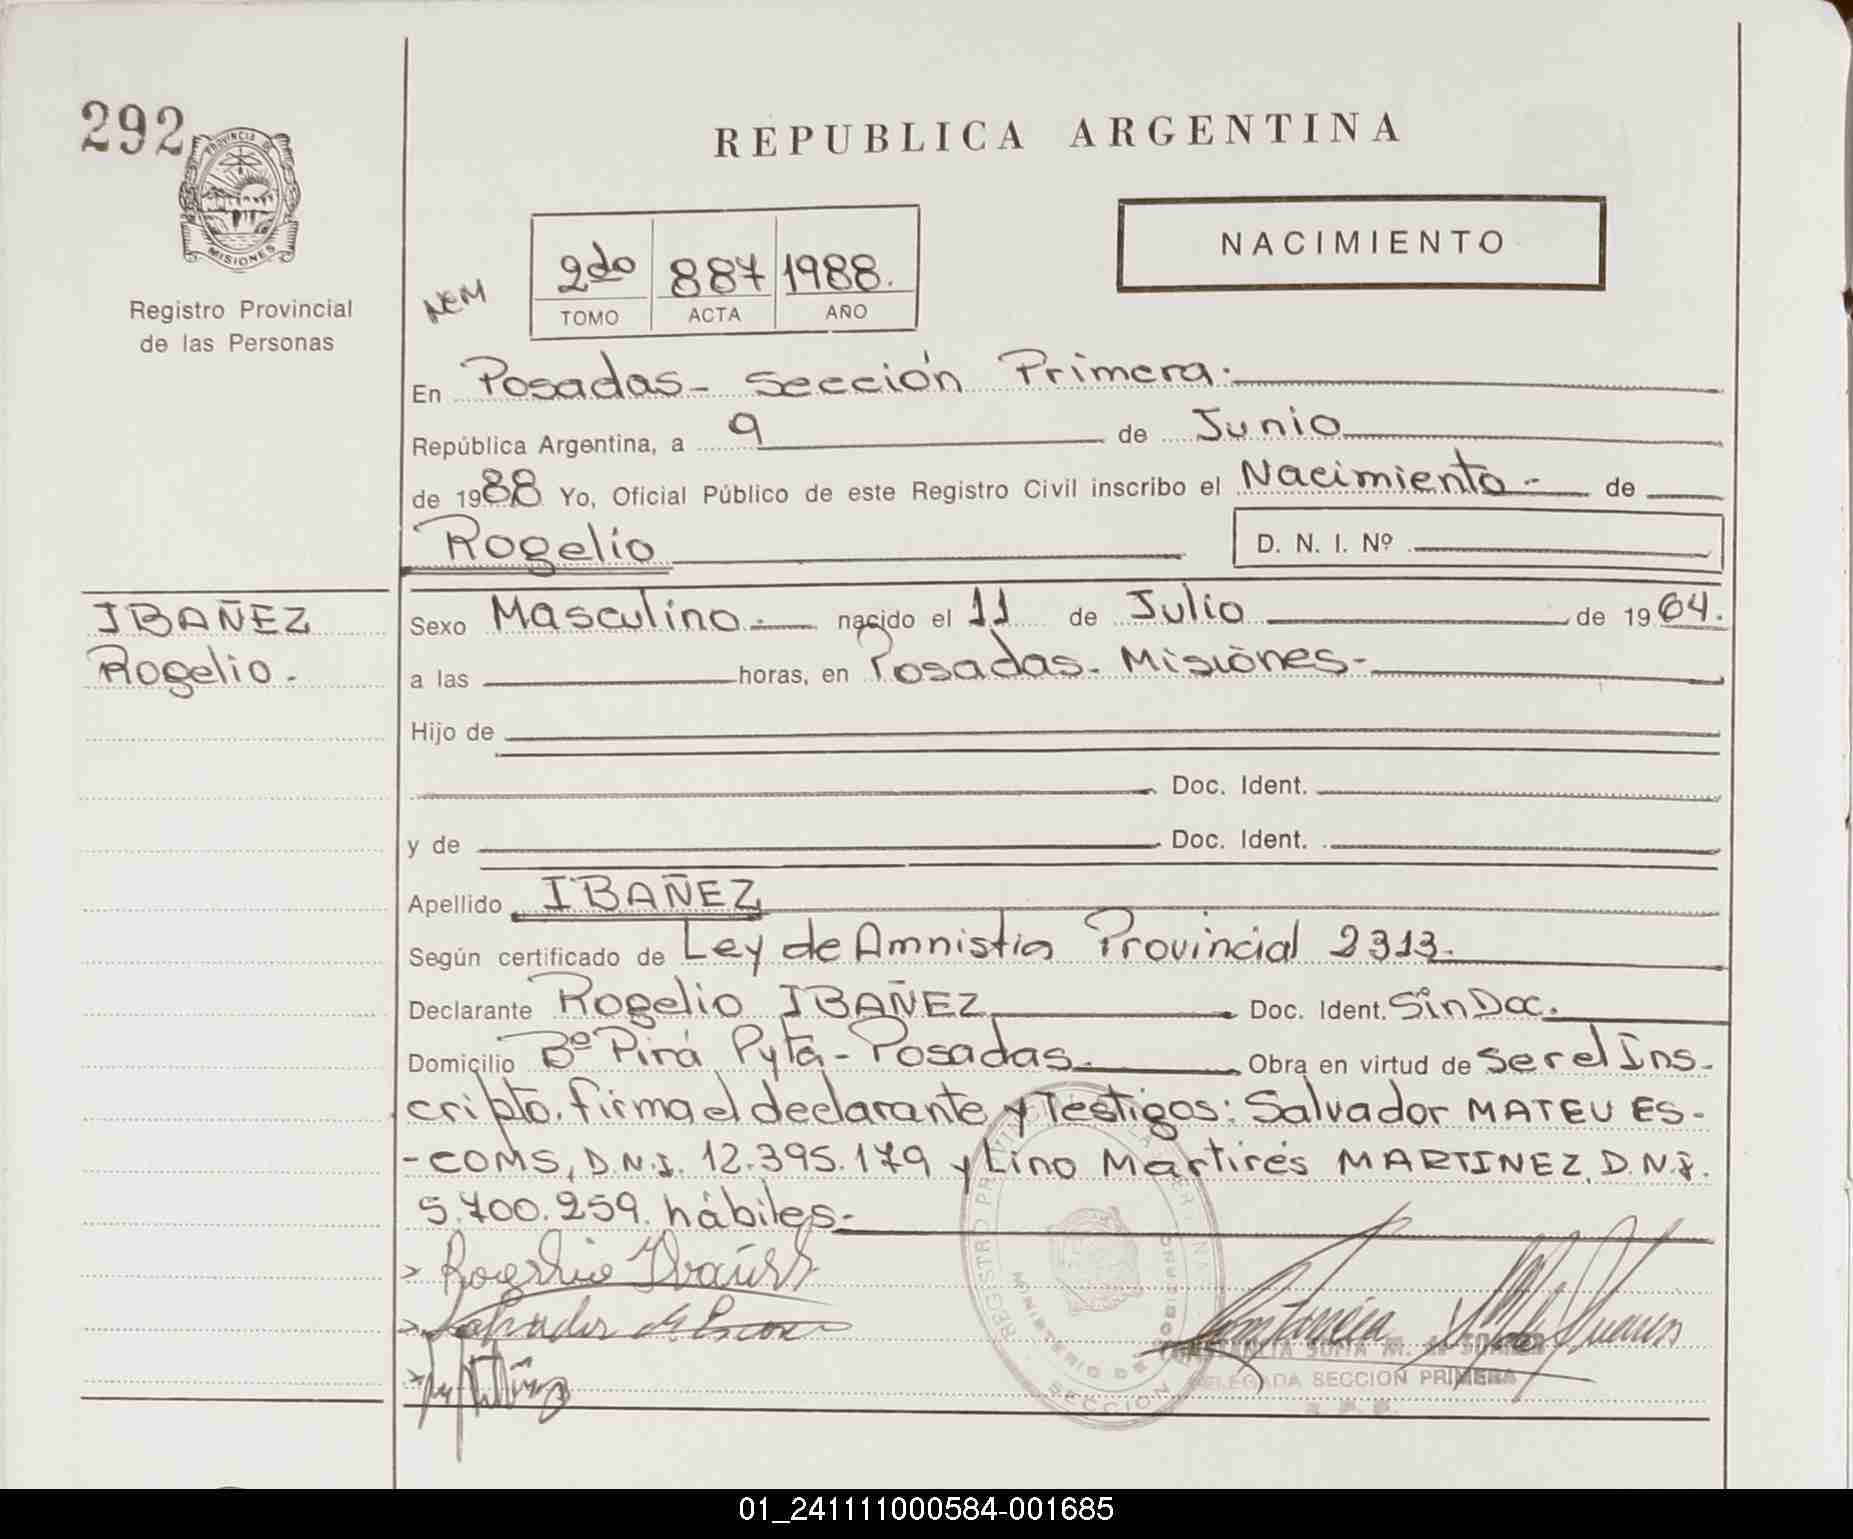 292
PROVINCIA DE
MISIONES
Registro Provincial
de las Personas
REPUBLICA ARGENTINA
NACIMIENTO
NEM
2do 887 1988.
TOMO ACTA AÑO
En Posadas- Sección Primera.
República Argentina, a 9 de Junio
de 1988 Yo, Oficial Público de este Registro Civil inscribo el Nacimiento- de
Rogelio D. N. I. Nº
IBAÑEZ
Rogelio.
Sexo Masculino. nacido el 11 de Julio de 1964.
a las horas, en Posadas- Misiones-
Hijo de
Doc. Ident.
y de Doc. Ident.
Apellido IBAÑEZ
Según certificado de Ley de Amnistia Provincial 2313.
Declarante Rogelio IBAÑEZ Doc. Ident. Sin Doc.
Domicilio Bº Pirá Pytá- Posadas. Obra en virtud de ser el Ins-
cripto. firma el declarante y Testigos: Salvador MATEU ES-
-COMS, D.N.I. 12.395.179 y Lino Martires MARTINEZ, D.N.I.
5.700.259. hábiles-
Rogelio Ibañez
DELEGADA SECCION PRIMERA
REGISTRO
MINISTERIO DE GOBIERNO
SECCION
01_241111000584-001685